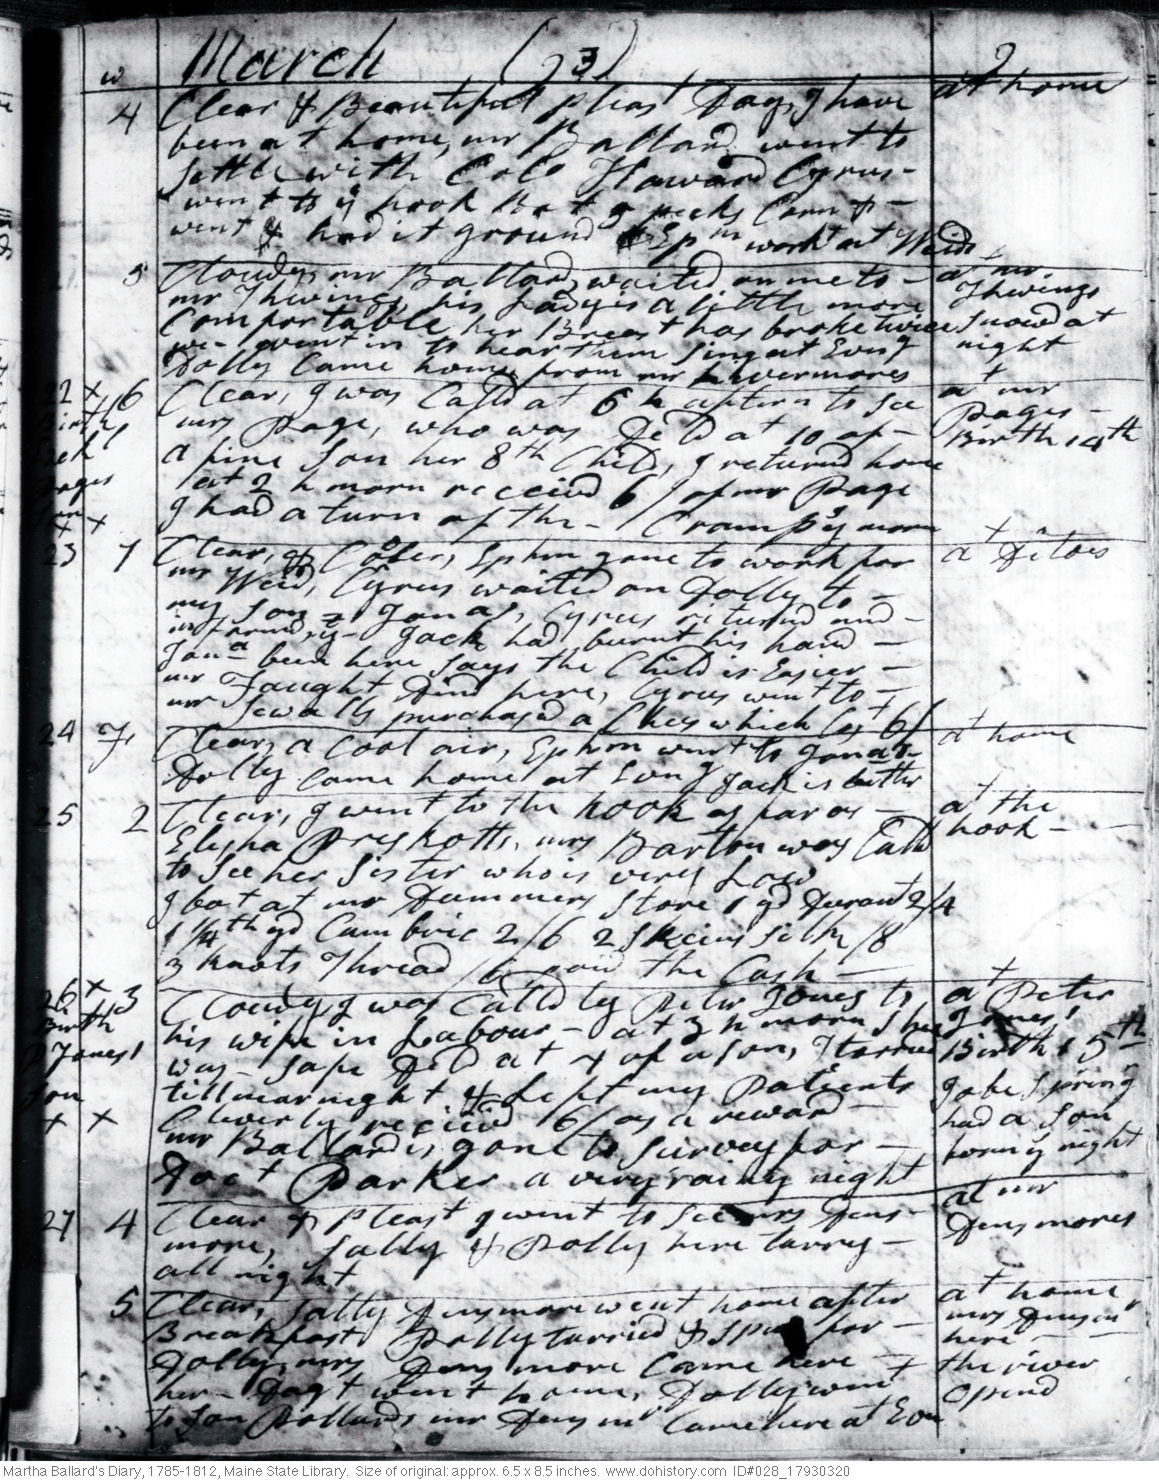 w March (93) 9
4 Clear & Beautifull pleast Day, I have at home
been at home, mr Ballard went to
settle with Colo Haward Cyrus -
went to ye hook Bot 5 pecks Corn & -
went & had it ground Ephm workt at Weids
5 Cloudy, mr Ballard waited on me to - at mr
mr Thwings, his Ladye is a little more Thwings
Comfortable her Breast has broke twice Snowd at
we went in to hear them Sing at Evng night
Dolly Came home from mr Livermores
22 x 6 Clear, I was Calld at 6 h aftern to See at mr
Birth mrs Page, who was Deld at 10 of - Pages -
a fine Son her 8th Child, I returnd home Birth 14th
Pages at 2 h morn received 6/ of mr Page
Son x x I had a turn of the - Cramp ye morn
23 7 Clear, & Cooler, Ephm gone to work for at Ditoes
mr Weid, Cyrus waited on Dolly to -
my Son Jonas, Cyrus returnd and -
informd, yt Jack had burnt his hand -
Jona been here Says the Child is Easier -
mr Faught Dind here, Cyrus went to -
mr Sewalls purchased a Ches which Cost 6/
24 F Clear, a Cool air, Ephm went to Jonas - at home
Dolly Came home at Evng Jack is better
25 2 Clear, I went to the hook as far as - at the
Elisha Preskotts, mrs Barton was Calld hook - -
to See her Sister who is very Low
I bot at mr Dummers Store 1 yd Durant 2/4
1 1/4th yd Cambric 2/6 2 Skeins Silk /8
3 knots Thread /6, paid the Cash -
26 x 3 Cloudy, I was Calld by Peter Jones to at Peter
Birth his wife in Labour - at 3 h morn, Shee Jones'
P Jones' was Safe Deld at 4 of a Son, I tarried Birth 15th
Son till near night & Left my Patients Jabe Spring
x x Cleverly received 6/ as a reward - had a Son
mr Ballard is gone to Survey for - born ye night
Doct Parker a very rainy night
27 4 Clear & pleast I went to See mrs Dens - at mr
more, Sally & Polly here tarry - Densmores
all night
5 Clear, Sally Densmore went home after at home
Breakfast Polly tarried & Spun for - mrs Densmr
Dolly, mrs Densmore Came here & here -
her - Dagt went home, Dolly went the river
to Son Pollards mr Densmr Came here at Evn opend
Martha Ballard's Diary, 1785-1812, Maine State Library. Size of original: approx. 6.5 x 8.5 inches. www.dohistory.com ID#028_17930320